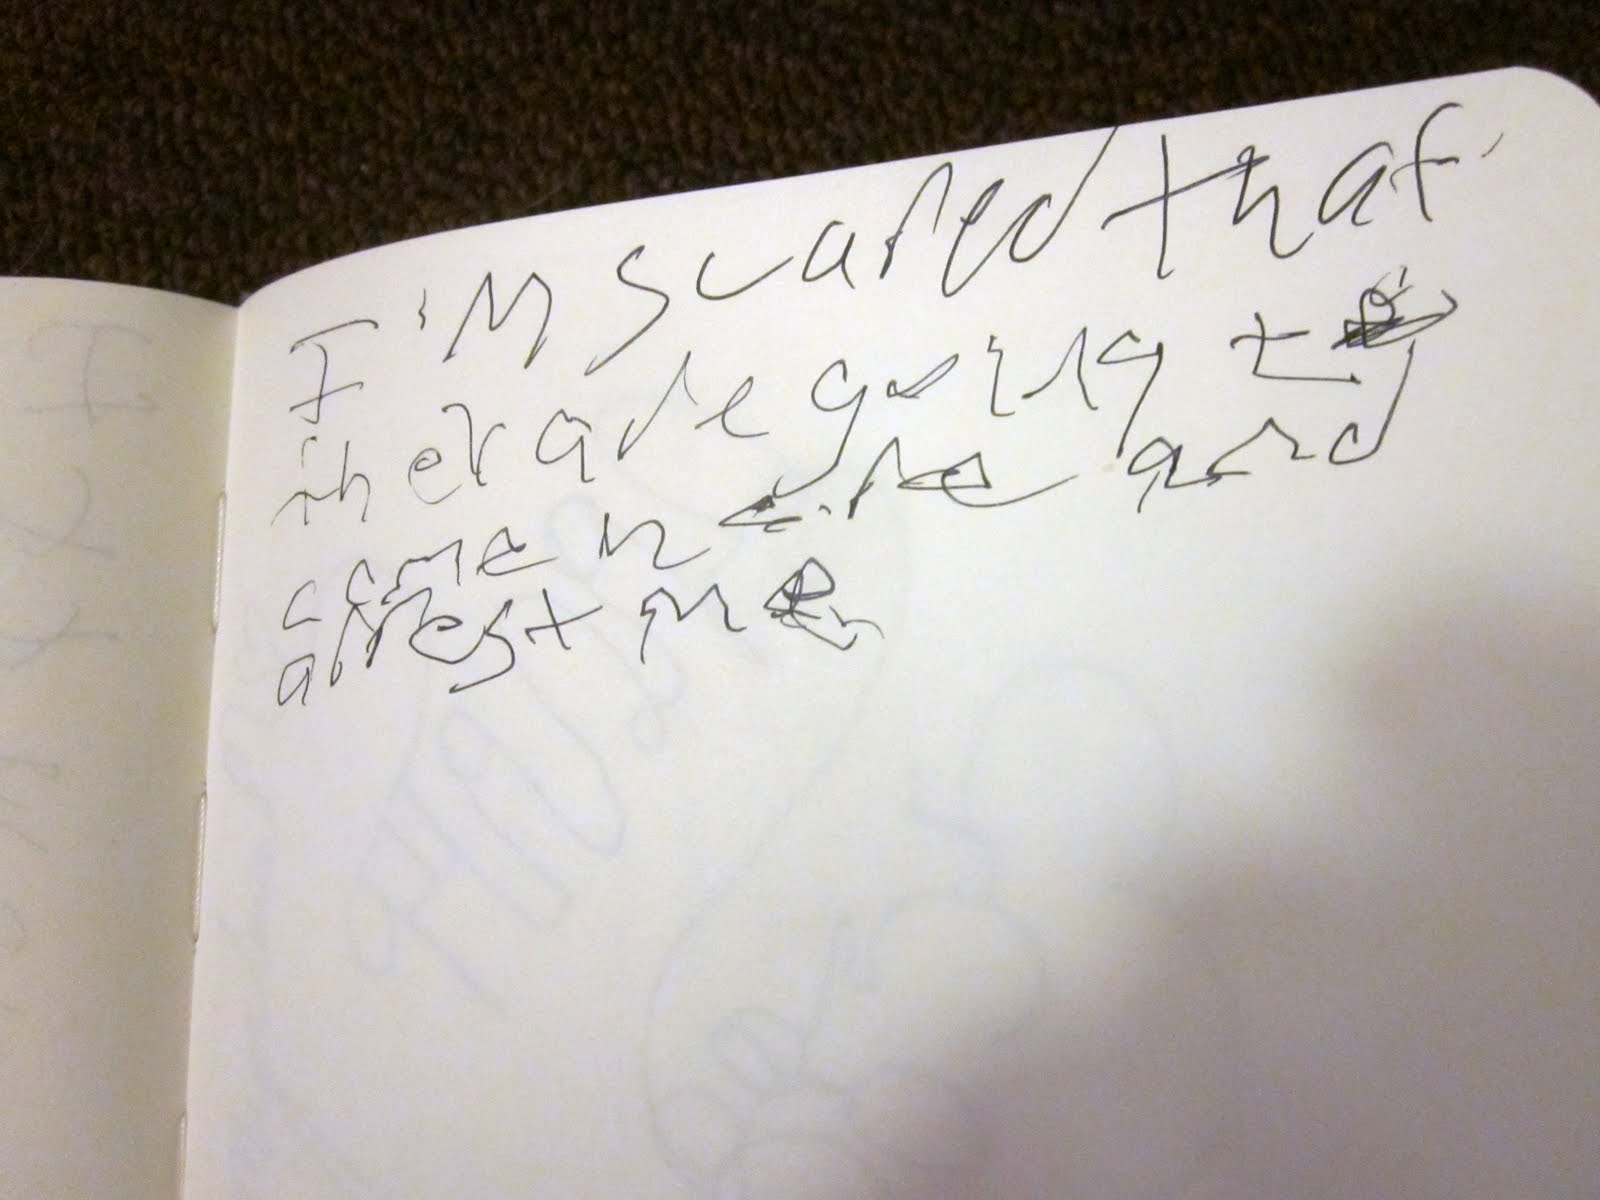 I'm scared that
they are going to
come here and
arrest me